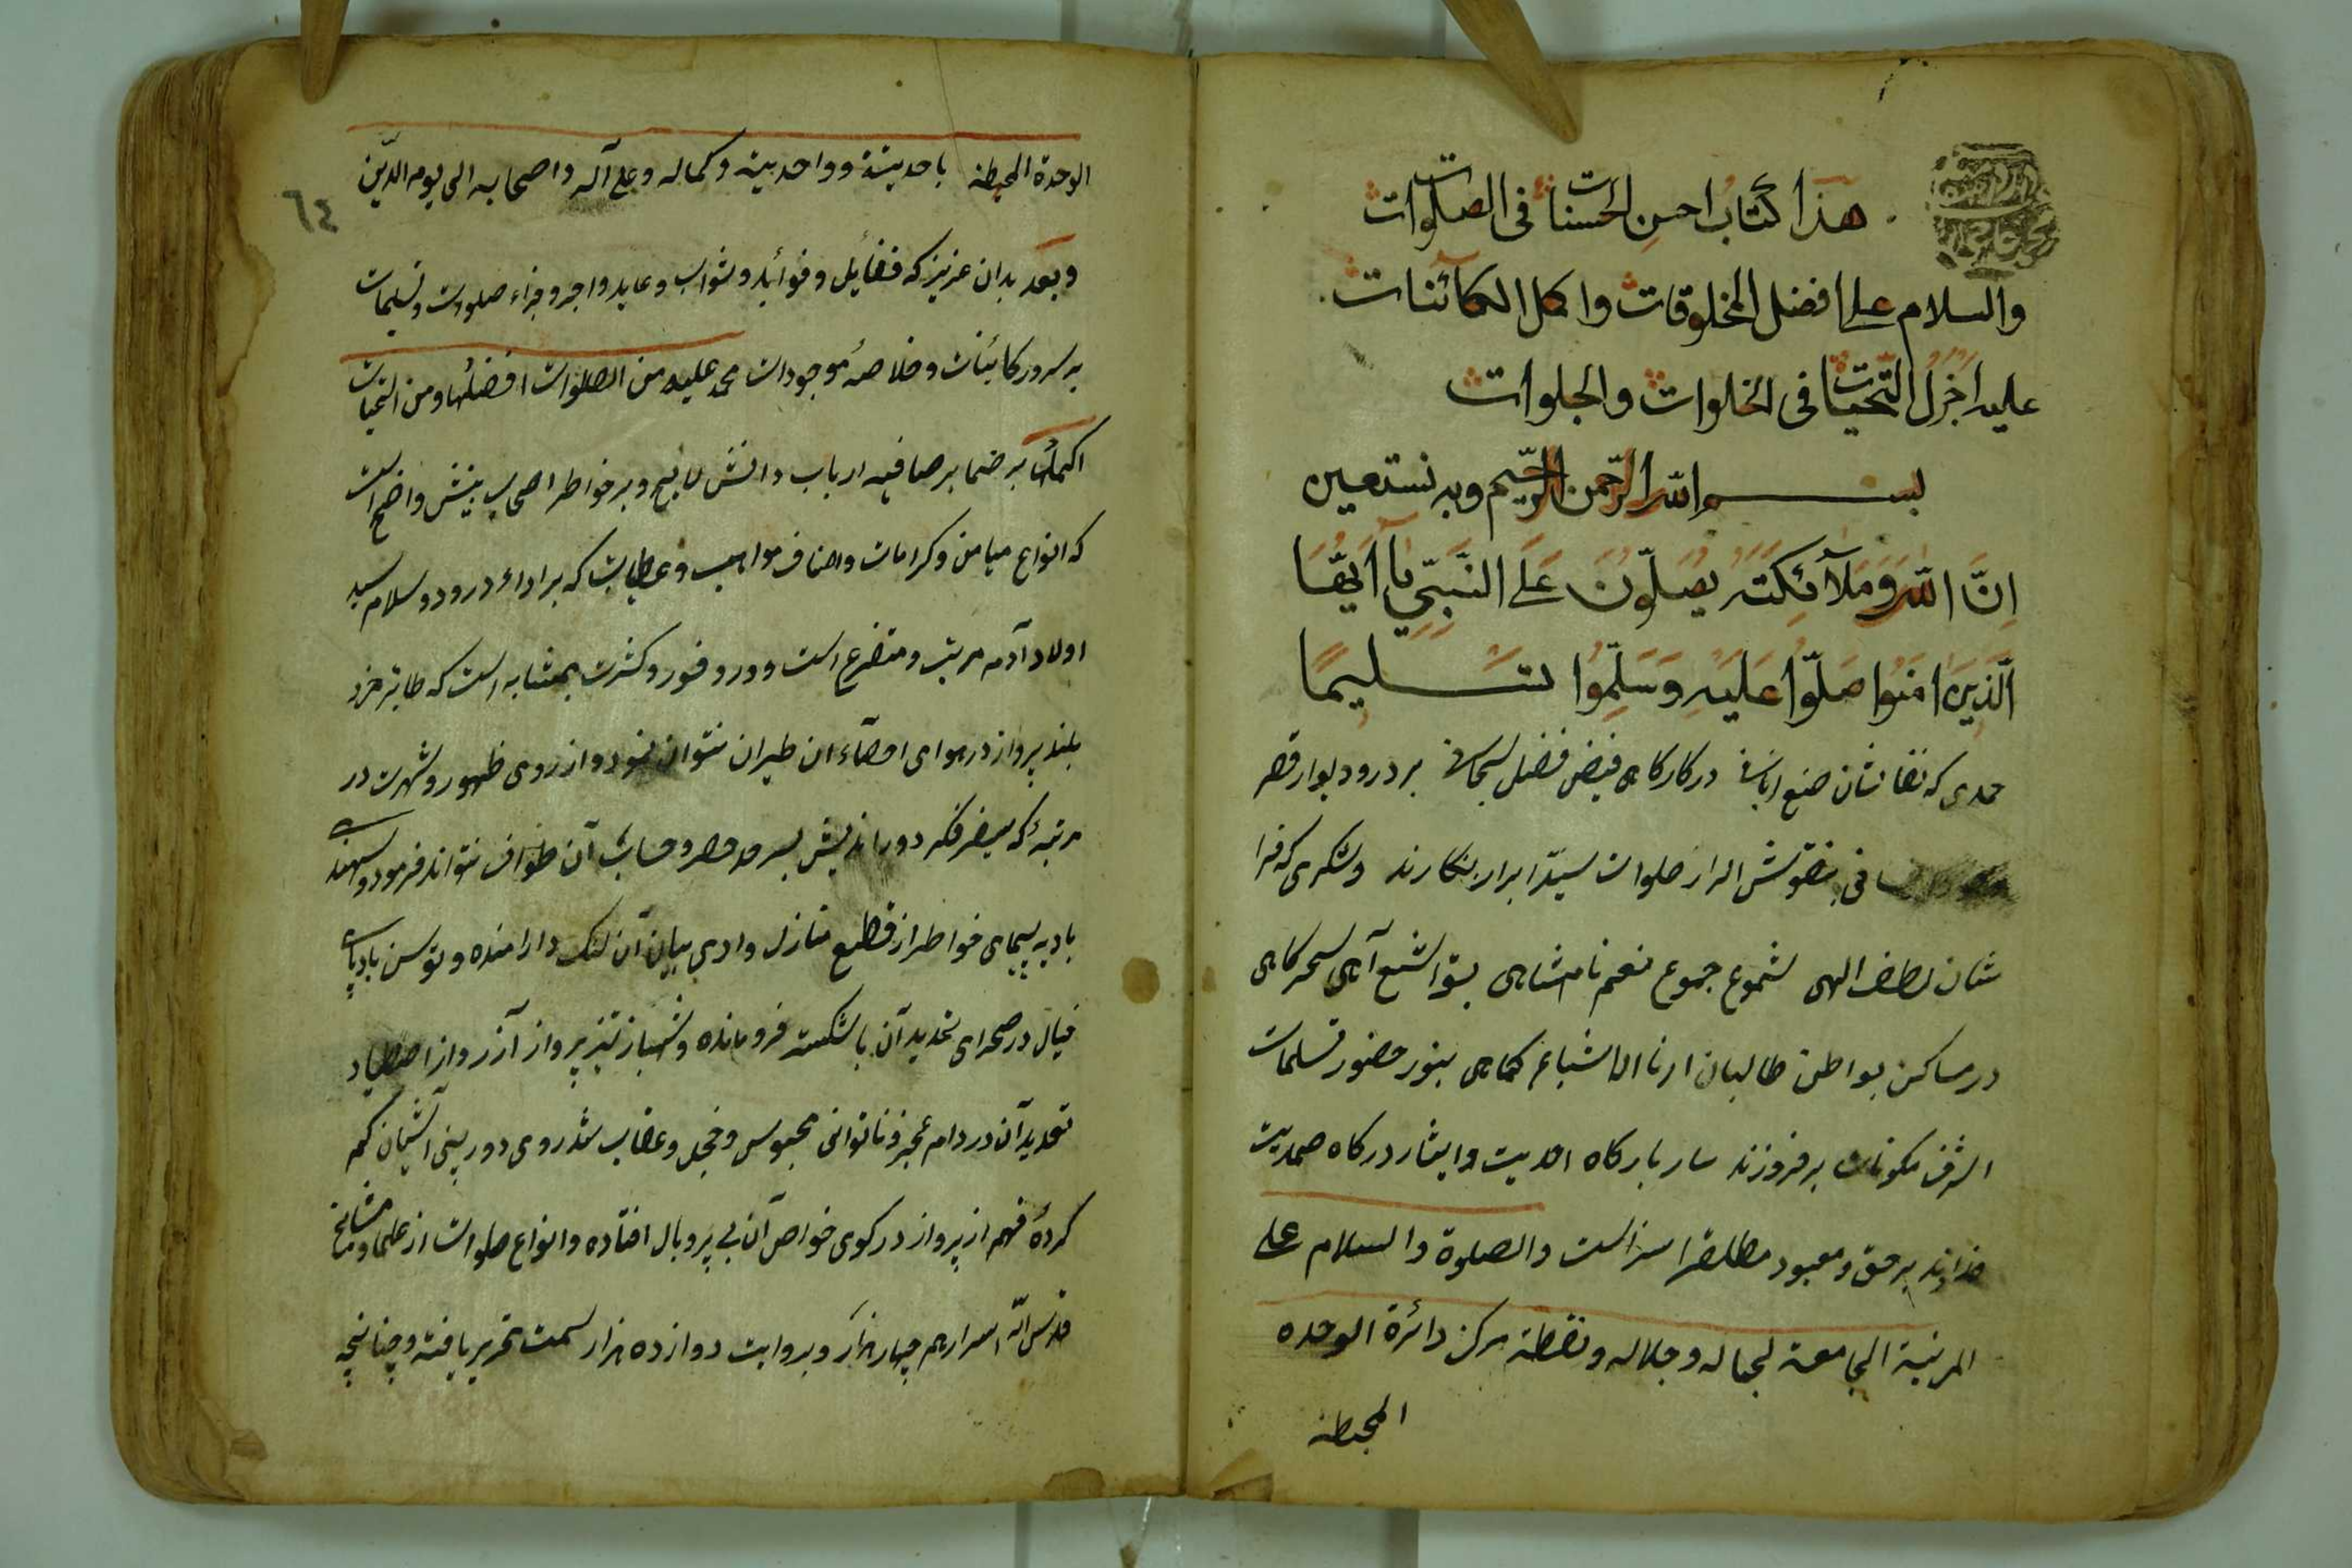 هذا كتاب احسن الحسنات فى الصلوات
والسلام على افضل المخلوقات واكمل الكائنات
عليه اجزل التحيات فى الخلوات والجلوات
بسم الله الرحمن الرحيم وبه نستعين
اِنَّ اللّٰهَ وَمَلآئِكَتَهُ يُصَلّونَ عَلَى النَّبِىِّ يآ اَيُّهَا
الَّذِينَ امَنُوا صَلّوُا عَلَيْهِ وَسَلِّمُوا تسليمًا
حمدى كه نقاشان صنع در كارگاه فيض فضل سبحانى بر در و ديوار قصر
بنقوش اسرار صلوات سيّد ابرار بنگارند و شكرى كه
شان لطف الهى بشموع جموع نعم نامتناهى آه سحرگاهى
در مساكن بواطن طالبان ارنا الاشياء كماهى بنور حضور تسليمات
اشرف مكونات برفروزند بارگاه احديت و ايثار درگاه صمديت
خداوند برحق و معبود مطلق را سزاست والصلوة والسلام على
المرتبة الجامعة لجماله وجلاله ونقطة مركز دائرة الوحده
المحيطة
الوحدة المحيطة باحديته وواحديته وكماله وعلى آله واصحابه الى يوم الدّين
٦٤
وبعد بدان عزيز كه فضايل و فوائد و ثواب و عايد و اجر و جزاء صلوات و تسليمات
بر سرور كائنات و خلاصهٔ موجودات محمد عليه من الصلوات افضلها ومن التحيات
اكملها بر ضماير صافيه ارباب دانش لايح و بر خواطر اصحاب بينش واضح است
كه انواع ميامن و كرامات و اصناف مواهب و عطايات كه بر اداء درود و سلام سيد
اولاد آدم مرتب و متفرع است و در وفور و كثرت بمثابه است كه طاير خرد
بلند پرواز در هواى احصاء ان طيران نتواند نمود و از روى ظهور و شهرت در
مرتبهٔ كه فكر دور انديش بسرحد حصر و حساب آن طواف نتواند فرمود و
باديه پيماى خواطر از قطع منازل وادى بيان آن لنگ و توسن بادپاى
خيال در صحراى تحديد آن پا شكسته فرو مانده و شهباز تيز پرواز آز از اصطياد
تعديد آن در دام عجز و ناتوانى محبوس و خجل و عقاب تندروى دوربين آشيان گم
كردهٔ فهم از پرواز در كوى خواص آن بى پر و بال افتاده و انواع صلوات از علما و مشايخ
قدس الله اسرارهم چهار هزار و بروايت دوازده هزار سمت تحرير يافته و چنانچه